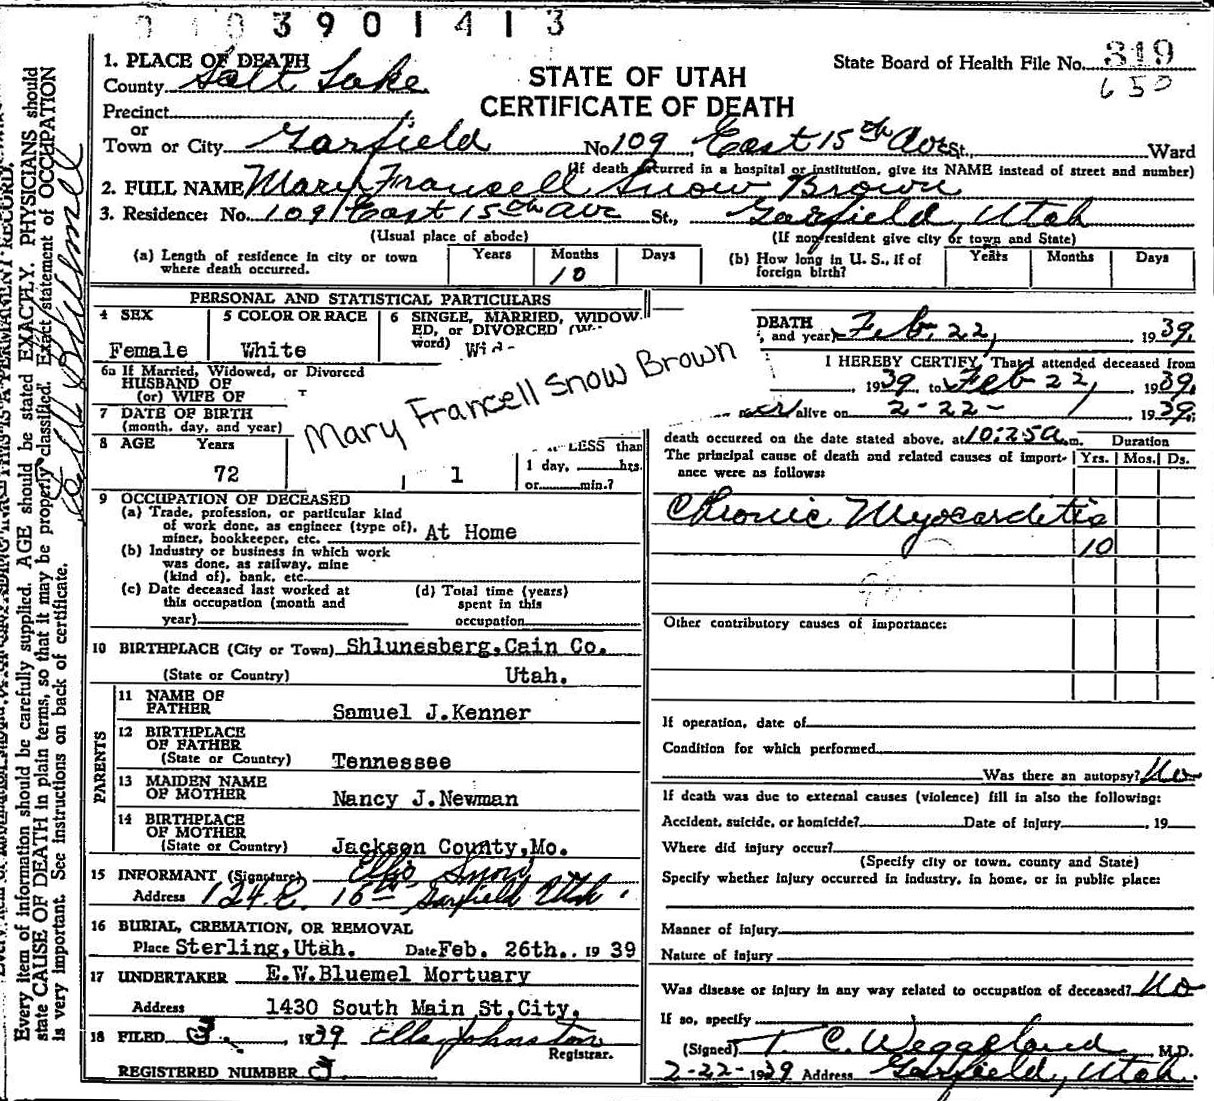 3901413
1. PLACE OF DEATH
County Salt Lake
STATE OF UTAH
CERTIFICATE OF DEATH
State Board of Health File No. 319
650
Precinct
or
Town or City Garfield No 109 East 15th Ave St., Ward
(If death occurred in a hospital or institution, give its NAME instead of street and number)
2. FULL NAME Mary Francell Snow Brown
3. Residence: No. 109 East 15th Ave St., Garfield, Utah
(Usual place of abode) (If nonresident give city or town and State)
(a) Length of residence in city or town
where death occurred.
Years Months Days
10
(b) How long in U. S., if of
foreign birth?
Years Months Days
PERSONAL AND STATISTICAL PARTICULARS
4 SEX
Female
5 COLOR OR RACE
White
6 SINGLE, MARRIED, WIDOW-
ED, or DIVORCED
word)
6a If Married, Widowed, or Divorced
HUSBAND OF
(or) WIFE OF
Mary Francell Snow Brown
7 DATE OF BIRTH
(month, day, and year)
8 AGE Years
72 1
LESS than
1 day, hrs.
or min.?
9 OCCUPATION OF DECEASED
(a) Trade, profession, or particular kind
of work done, as engineer (type of),
miner, bookkeeper, etc. At Home
(b) Industry or business in which work
was done, as railway, mine
(kind of), bank, etc.
(c) Date deceased last worked at
this occupation (month and
year)
(d) Total time (years)
spent in this
occupation
10 BIRTHPLACE (City or Town) Shlunesberg,Cain Co.
(State or Country) Utah.
PARENTS
11 NAME OF
FATHER Samuel J.Kenner
12 BIRTHPLACE
OF FATHER
(State or Country) Tennessee
13 MAIDEN NAME
OF MOTHER Nancy J.Newman
14 BIRTHPLACE
OF MOTHER
(State or Country) Jackson County,Mo.
15 INFORMANT (Signature) Snow
Address 124 E. 16th Garfield Utah
16 BURIAL, CREMATION, OR REMOVAL
Place Sterling,Utah. Date Feb. 26th., 1939
17 UNDERTAKER E.W.Bluemel Mortuary
Address 1430 South Main St.City.
18 FILED 3, 1939 Ella Johnston
Registrar.
REGISTERED NUMBER 3.
DEATH
, and year) Feb. 22, 1939.
I HEREBY CERTIFY, That I attended deceased from
, 1939 to Feb 22, 1939.
alive on 2-22- 1939.
death occurred on the date stated above, at 10:25 a. m.
Duration
The principal cause of death and related causes of import-
ance were as follows:
Yrs. Mos. Ds.
Chronic Myocarditis
10
Other contributory causes of importance:
If operation, date of
Condition for which performed
Was there an autopsy? No
If death was due to external causes (violence) fill in also the following:
Accident, suicide, or homicide? Date of injury , 19
Where did injury occur?
(Specify city or town, county and State)
Specify whether injury occurred in industry, in home, or in public place:
Manner of Injury
Nature of Injury
Was disease or injury in any way related to occupation of deceased? No
If so, specify
(Signed) T. C. Weggeland M.D.
2-22-1939 Address Garfield, Utah.
Every item of information should be carefully supplied. AGE should be stated EXACTLY. PHYSICIANS should
state CAUSE OF DEATH in plain terms, so that it may be properly classified. Exact statement of OCCUPATION
is very important. See instructions on back of certificate.